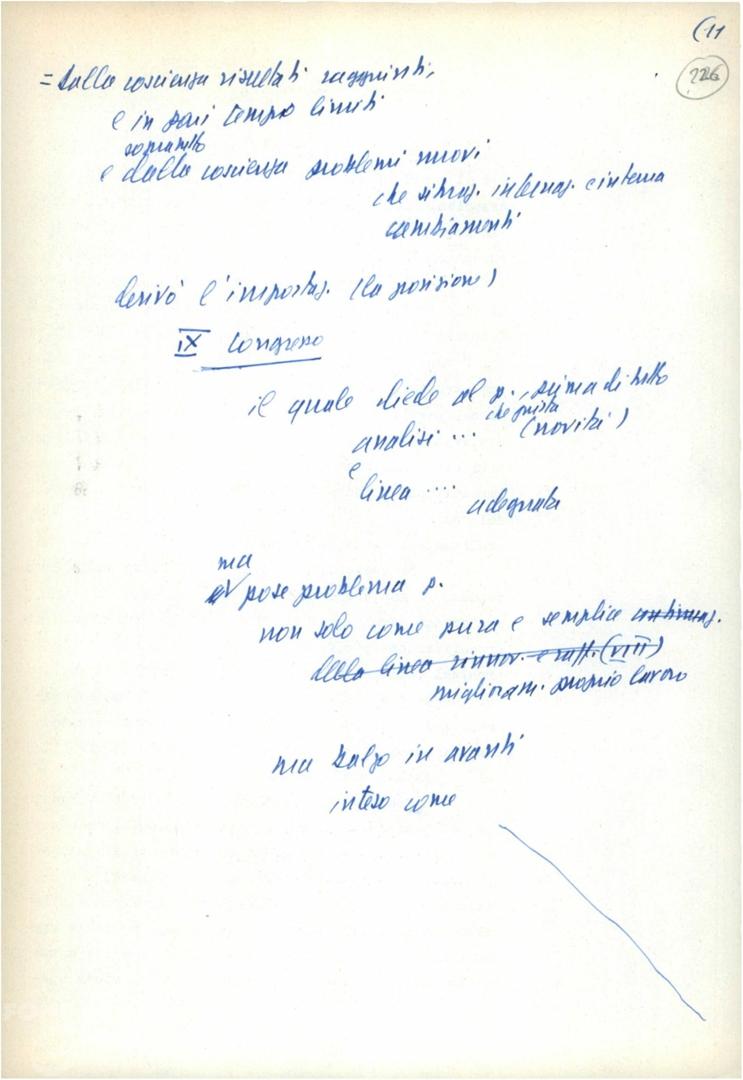 (11
226
= dalla coscienza risultati raggiunti,
e in pari tempo limiti
soprattutto
e dalla coscienza problemi nuovi
che situaz. internaz. e interna
cambiamenti
derivò l'impostaz. (la posizione)
IX Congresso
il quale diede al p., prima di tutto
che giusta
analisi ... (novità)
e
linea ....
adeguata
ma
pose problema p.
non solo come pura e semplice continuaz.
della linea rinnov. e raff. (VIII)
miglioram. proprio lavoro
ma balzo in avanti
inteso come